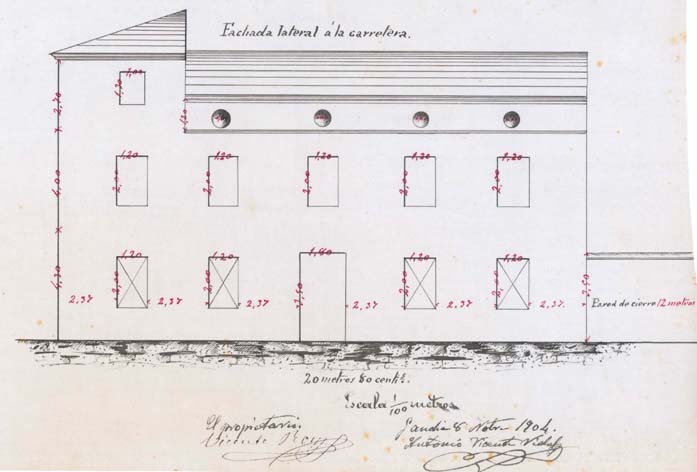 Fachada lateral á la carretera.
1,00
1,30
2,70
1,20
1,20 1,20 1,20 1,20 1,20
2,00 2,00 2,00 2,00 2,00
4,00
1,20 1,20 1,80 1,20 1,20
4,30
2,00 2,00 2,50 2,00 2,00 2,50
2,37 2,37 2,37 2,37 2,37 2,37
Pared de cierre 12 metros
20 metros 80 cents.
Escala 1/100 metros
El propietario. Gandia 8 Nobre 1904.
Vicente Antonio Vicente Vidal